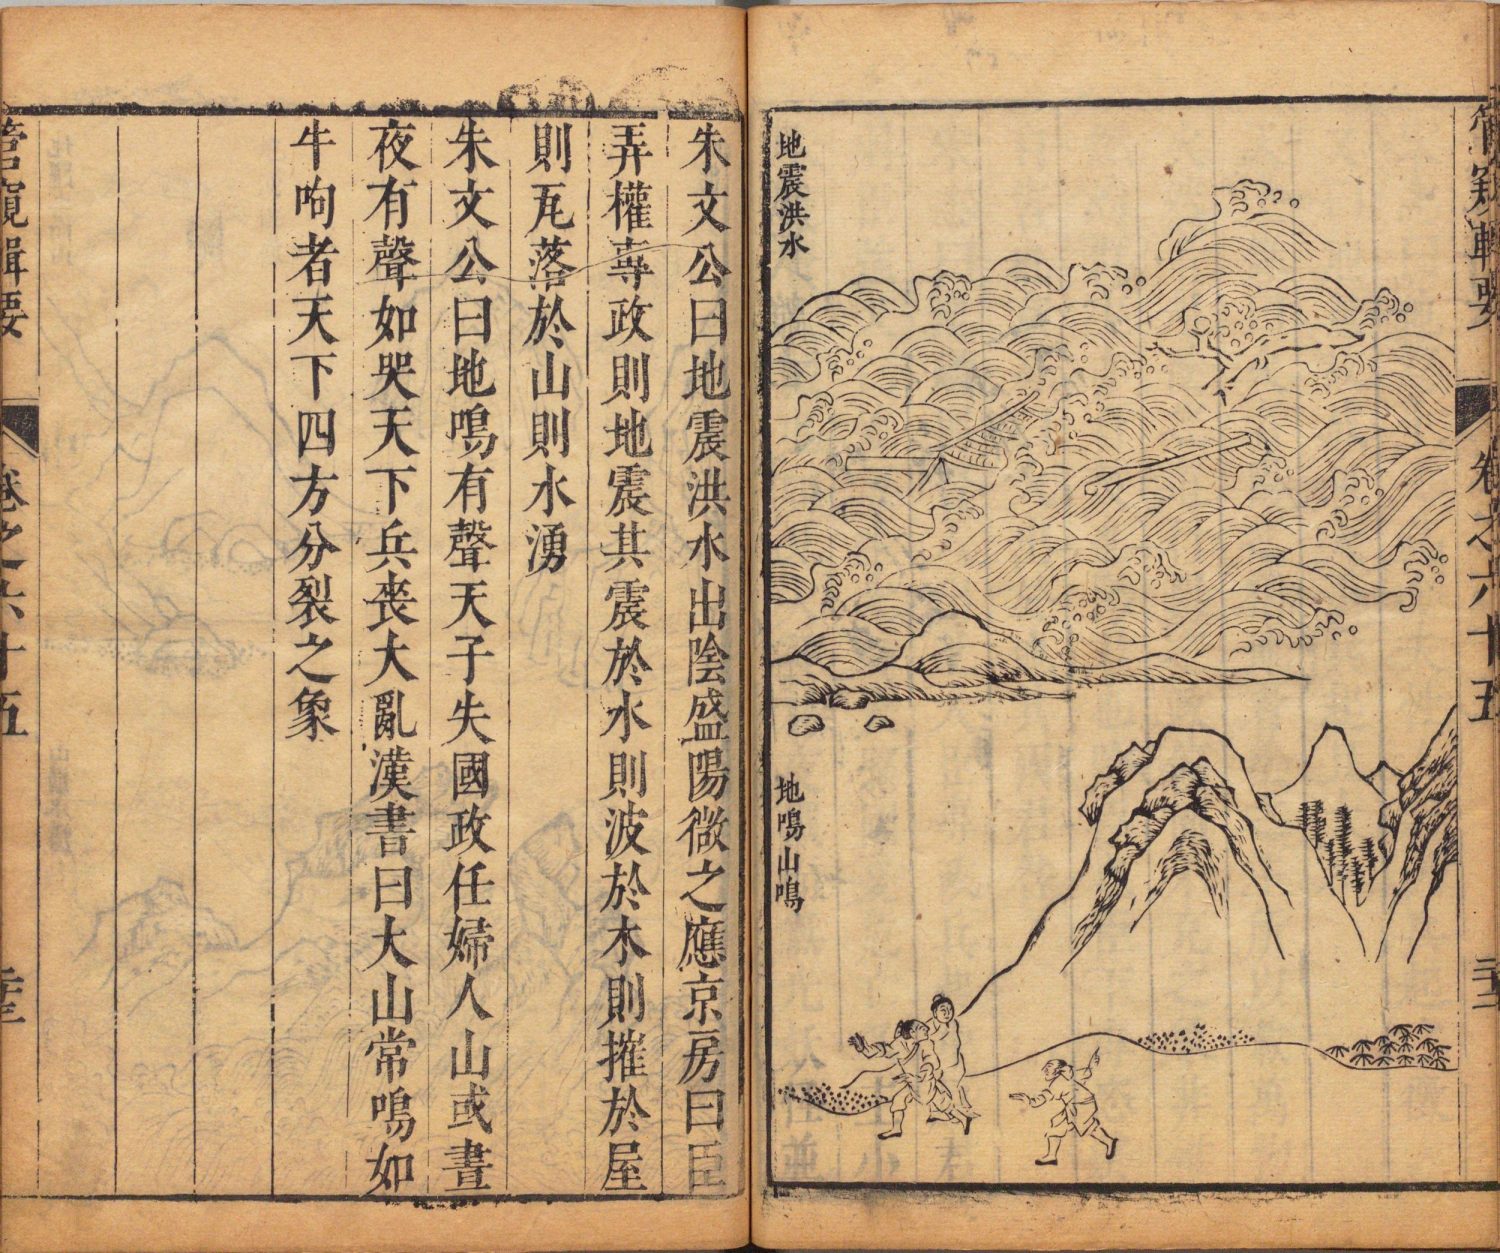 管窺輯要
卷之六十五
地震洪水
地鳴山鳴
朱文公曰地震洪水出陰盛陽微之應京房曰臣
弄權專政則地震其震於水則波於木則摧於屋
則瓦落於山則水湧
朱文公曰地鳴有聲天子失國政任婦人山或晝
夜有聲如哭天下兵喪大亂漢書曰大山常鳴如
牛呴者天下四方分裂之象
管窺輯要
卷之六十五